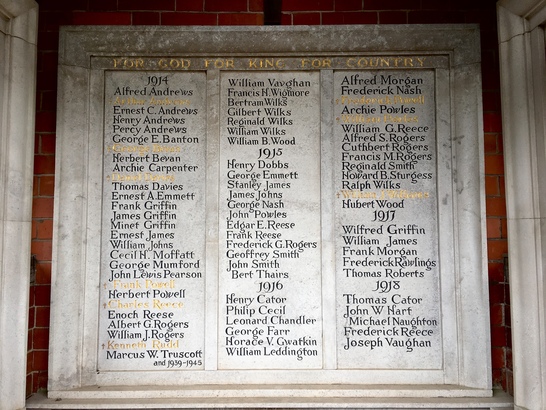 FOR GOD FOR KING FOR COUNTRY
1914
Alfred Andrews
Ernest C. Andrews
Henry Andrews
Percy Andrews
George E. Banton
Herbert Bevan
Archie Carpenter
Thomas Davies
Ernest A. Emmett
Frank Griffin
James Griffin
Minet Griffin
Ernest James
William Johns
Cecil H. Moffatt
George Mumford
John Lewis Pearson
Frank Powell
Herbert Powell
Charles Reece
Enoch Reese
Albert G. Rogers
William J. Rogers
Kenneth Rudd
Marcus W. Truscott
and 1939-1945
William Vaughan
Francis H. Wigmore
Bertram Wilks
Gilbert Wilks
Reginald Wilks
William Wilks
William B. Wood
1915
Henry Dobbs
George Emmett
Stanley James
James Johns
George Nash
John Powles
Edgar E. Reese
Frank Reese
Frederick G. Rogers
Geoffrey Smith
John Smith
Bert Thairs
1916
Henry Cator
Philip Cecil
Leonard Chandler
George Farr
Horace V. Gwatkin
William Leddington
Alfred Morgan
Frederick Nash
Archie Powles
William G. Reece
Alfred S. Rogers
Cuthbert Rogers
Francis M. Rogers
Reginald Smith
Howard B. Sturgess
Ralph Wilks
Hubert Wood
1917
Wilfred Griffin
William James
Frank Morgan
Frederick Rawlings
Thomas Roberts
1918
Thomas Cator
John W. Hart
Michael Naughton
Frederick Reece
Joseph Vaughan